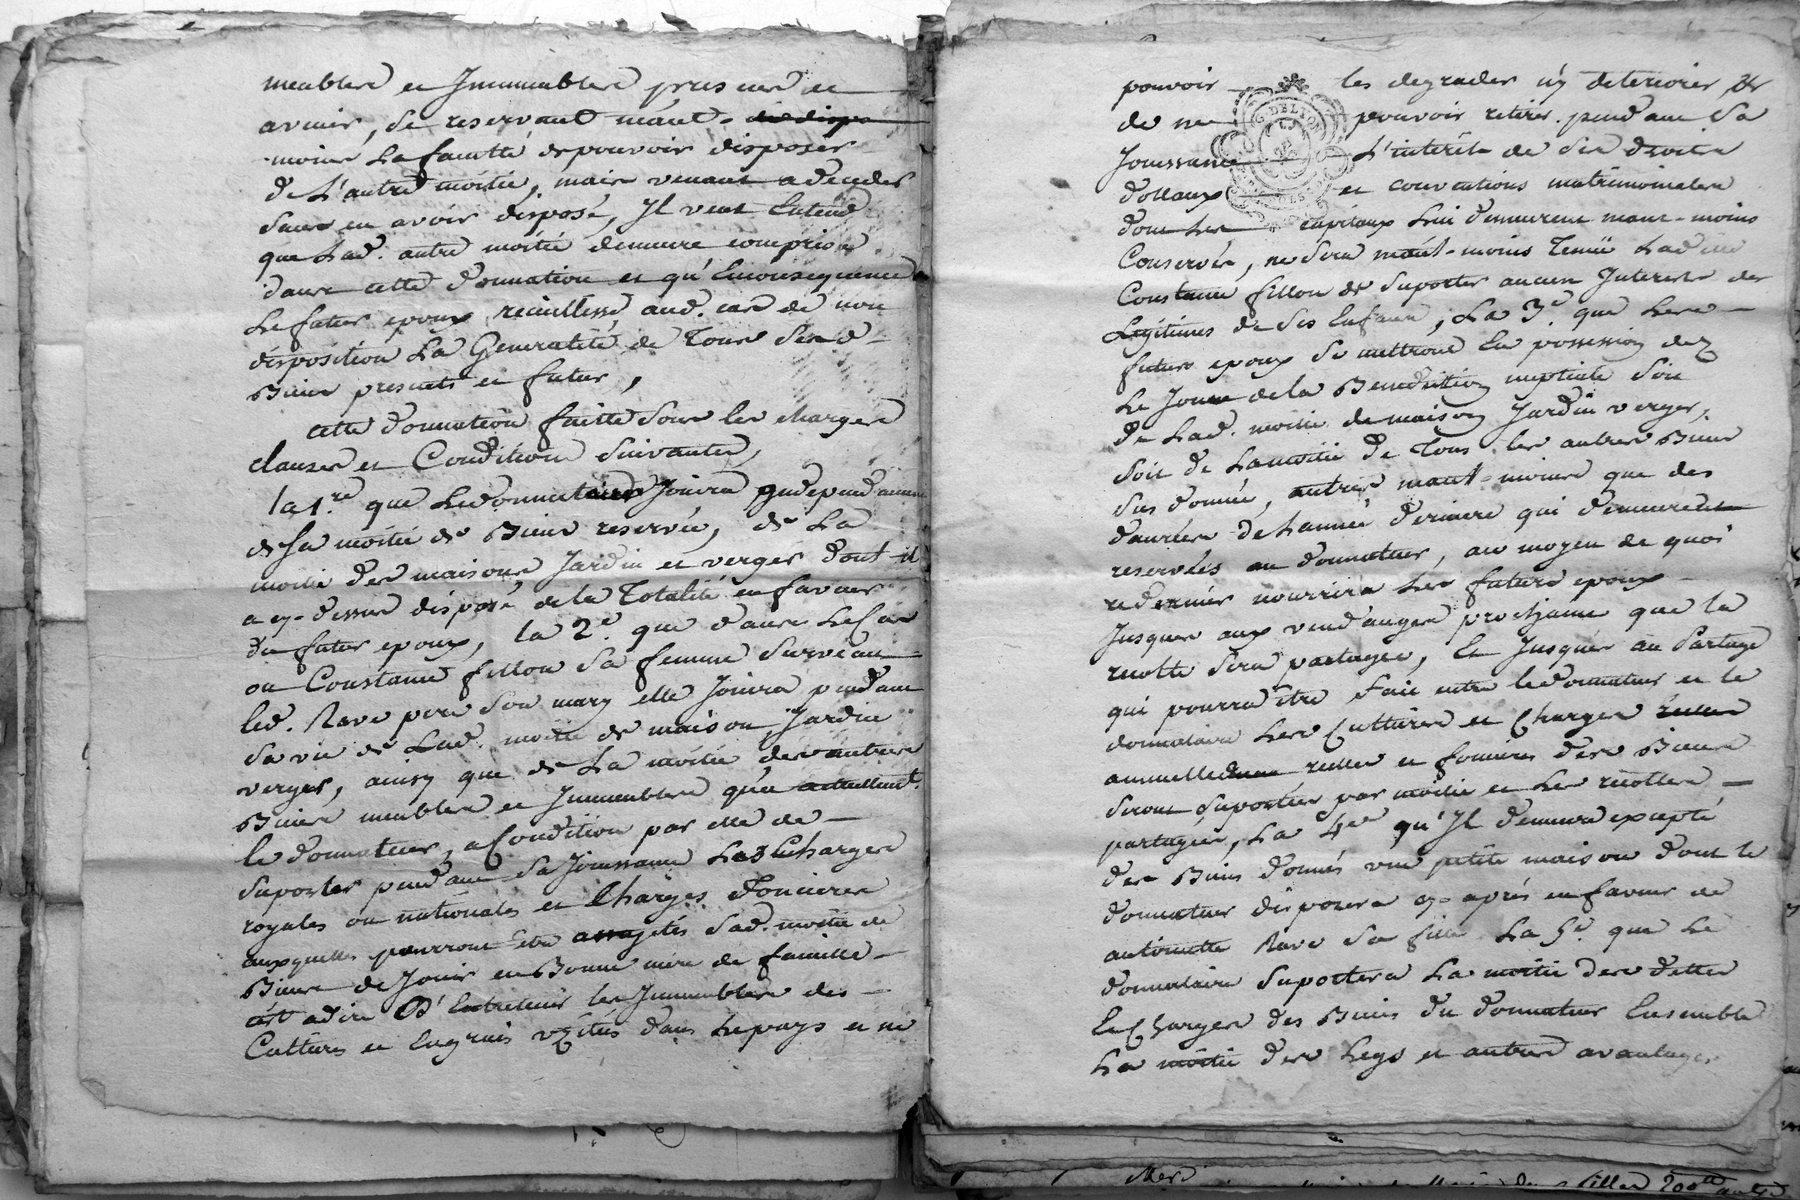 meubles et Immeubles presents et
avenir, se reservant néant-
moins La faculté de pouvoir disposer
de L'autre moitié, mais venant a deceder
sans en avoir disposé, Il veut Entend
que Lad. autre moitié demeure comprise
dans cette donnation et qu'Enconsequence
Le futur epoux recueillesse aud. cas de non
disposition La Generalité de Tous Sesd
Biens presents et futur,
cette donnation faitte Sous les charges
clauses et Conditions Suivantes,
la 1.re que Ledonnataire Jouira Independament
de Sa moitié de Biens reservée, de La
moitié des maisons Jardin et verger dont il
a cy-dessus disposé de la Totalité en faveur
du futur epoux, la 2.e que dans Le Cas
ou Constance fillon Sa femme Surveau
led. Rave pere Son mary elle Jouira pendant
Sa vie de Lad. moitié de maison, Jardin
verger, ainsy que de La moitié des autres
Biens meubles et Immeubles qu'a actuellemt.
le donnateur, a Condition par elle de
Suporter pendant Sa Jouissance Les Charges
royales ou nationales et Charges Foncieres
auxquelles pourront être assujetis Sad. moitié de
Biens de Jouir en Bonne mère de famille
c'est adire D'Entretenir les Immeubles des
Cultures et Engrais usités dans Le pays et ne
pouvoir les degrader n'y deteriorer, &
de ne pouvoir retirer pendant Sa
Jouissance L'interêt de Ses droits
dottaux et convention matrimoniales
dont Les capitaux Lui demeurent neant-moins
Conservés, ne Sera néant-moins Tenüe Ladite
Constance fillon de Suporter aucun Interest des
Legitimes de Ses Enfans, La 3.e que Les
futurs epoux Se mettront En possession dez
Le Jour de la Benediction nuptiale Soit
de Lad. moitié de maison Jardin verger,
Soit de La moitié de Tous les autres Biens
Sus donnés, autres neant-moins que des
denrées de L'année derniere qui demeurent
reservées au donnateur, au moyen de quoi
ce dernier nourrira Les futurs epoux
Jusques aux vendanges prochaine que la
recolte Sera partagée, Et Jusques au Partage
qui pourra être Fait entre le donnateur et le
donnataire Les Cultures et Charges
annuelle reelles et foncieres des Biens
Seront Suportées par moitié et Les recoltes
partagées, La 4.e qu'Il demeure excepté
des Biens donnés une petite maison dont le
donnateur disposera cy-après en faveur de
antoinette Rave Sa fille La 5.e que Le
donnataire Suportera La moitié des dettes
Et Charges des Biens du donnateur Ensemble
La moitié des Legs et autres avantages
G. DE LYON